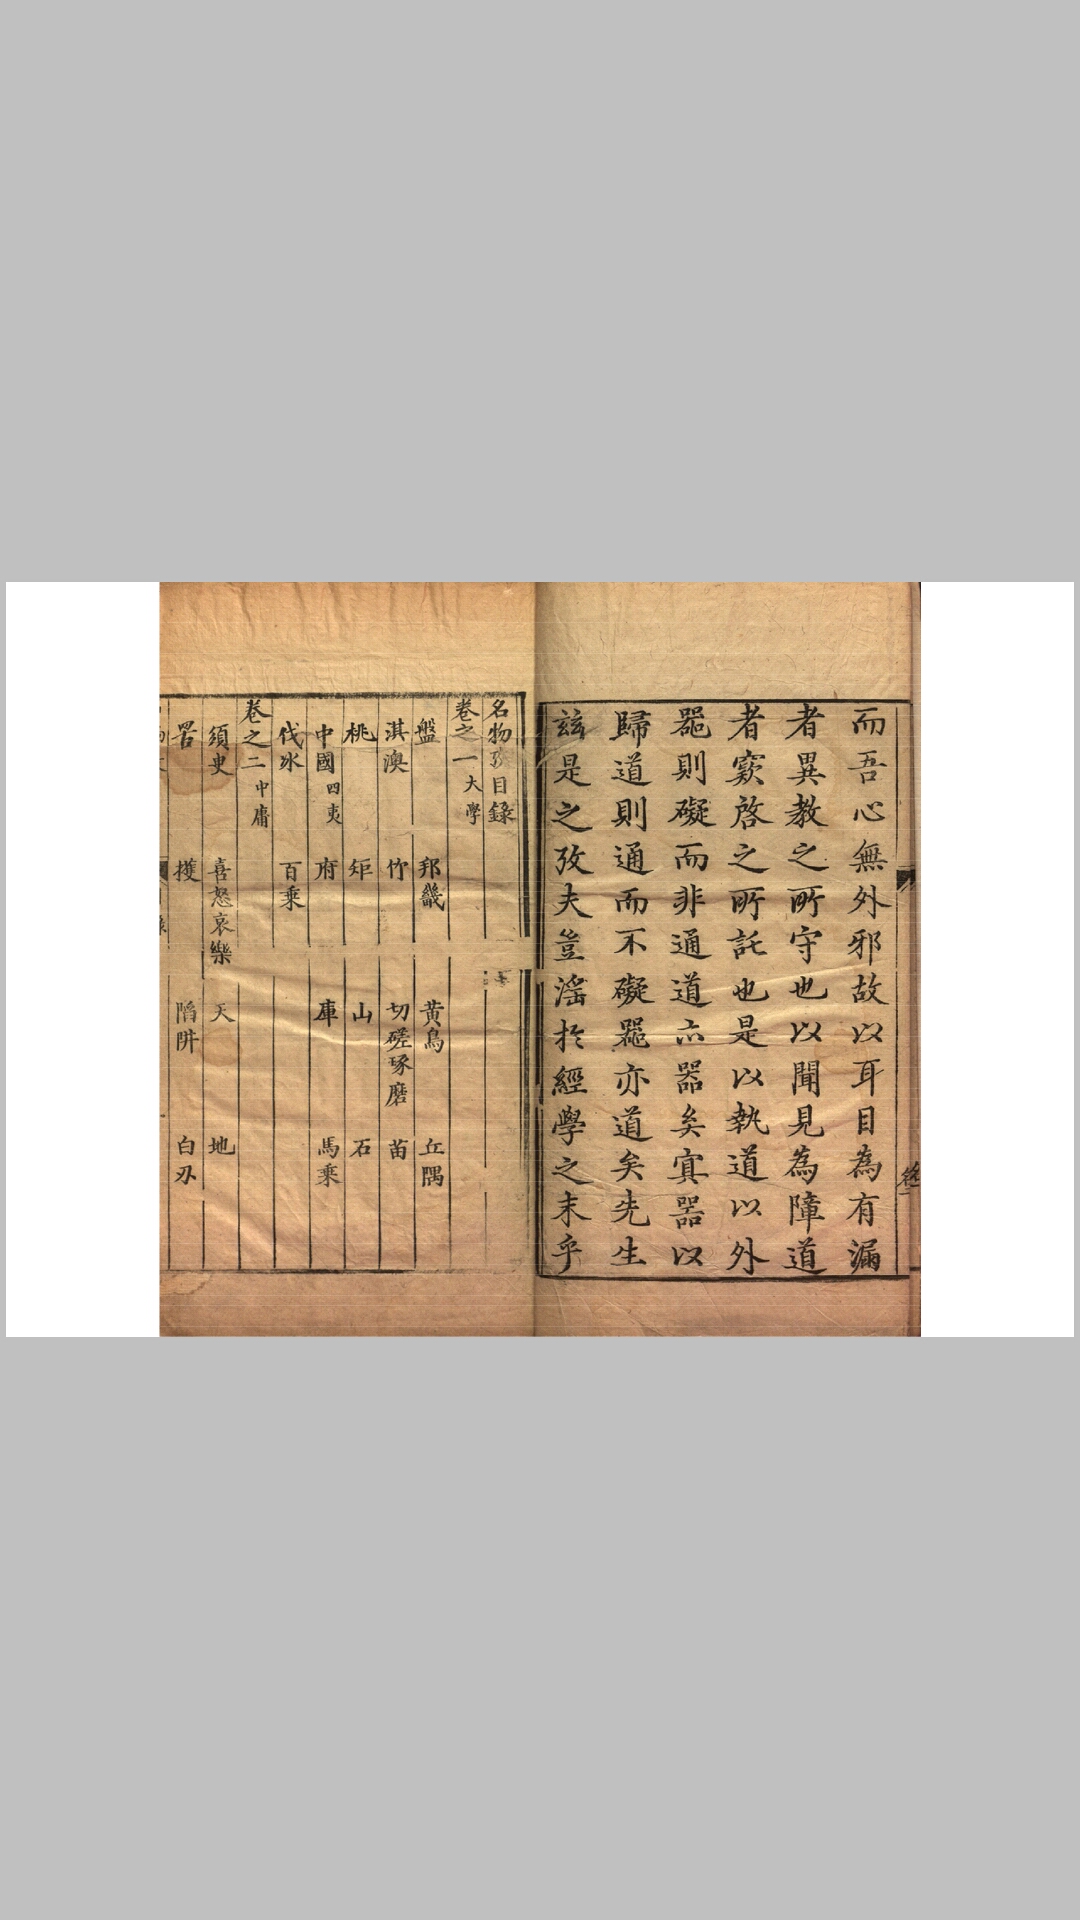 而吾心無外邪故以耳目為有漏
者異教之所守也以聞見為障道
者竅啓之所託也是以執道以外
噐則礙而非通道亦器矣寘器以
歸道則通而不礙噐亦道矣先生
茲是之攷夫豈滛於經學之末乎
名物攷目錄
卷之一 大學
盤 邦畿 黃鳥 丘隅
淇澳 竹 切磋琢磨 菌
桃 矩 山 石
中國 四夷 府 庫 馬乘
伐冰 百乘
卷之二 中庸
須臾 喜怒哀樂 天 地
罟 擭 陷阱 白刃